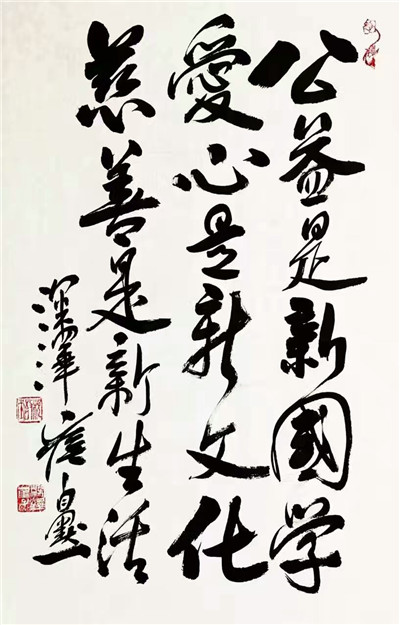 公益是新國学
愛心是新文化
慈善是新生活
深澤